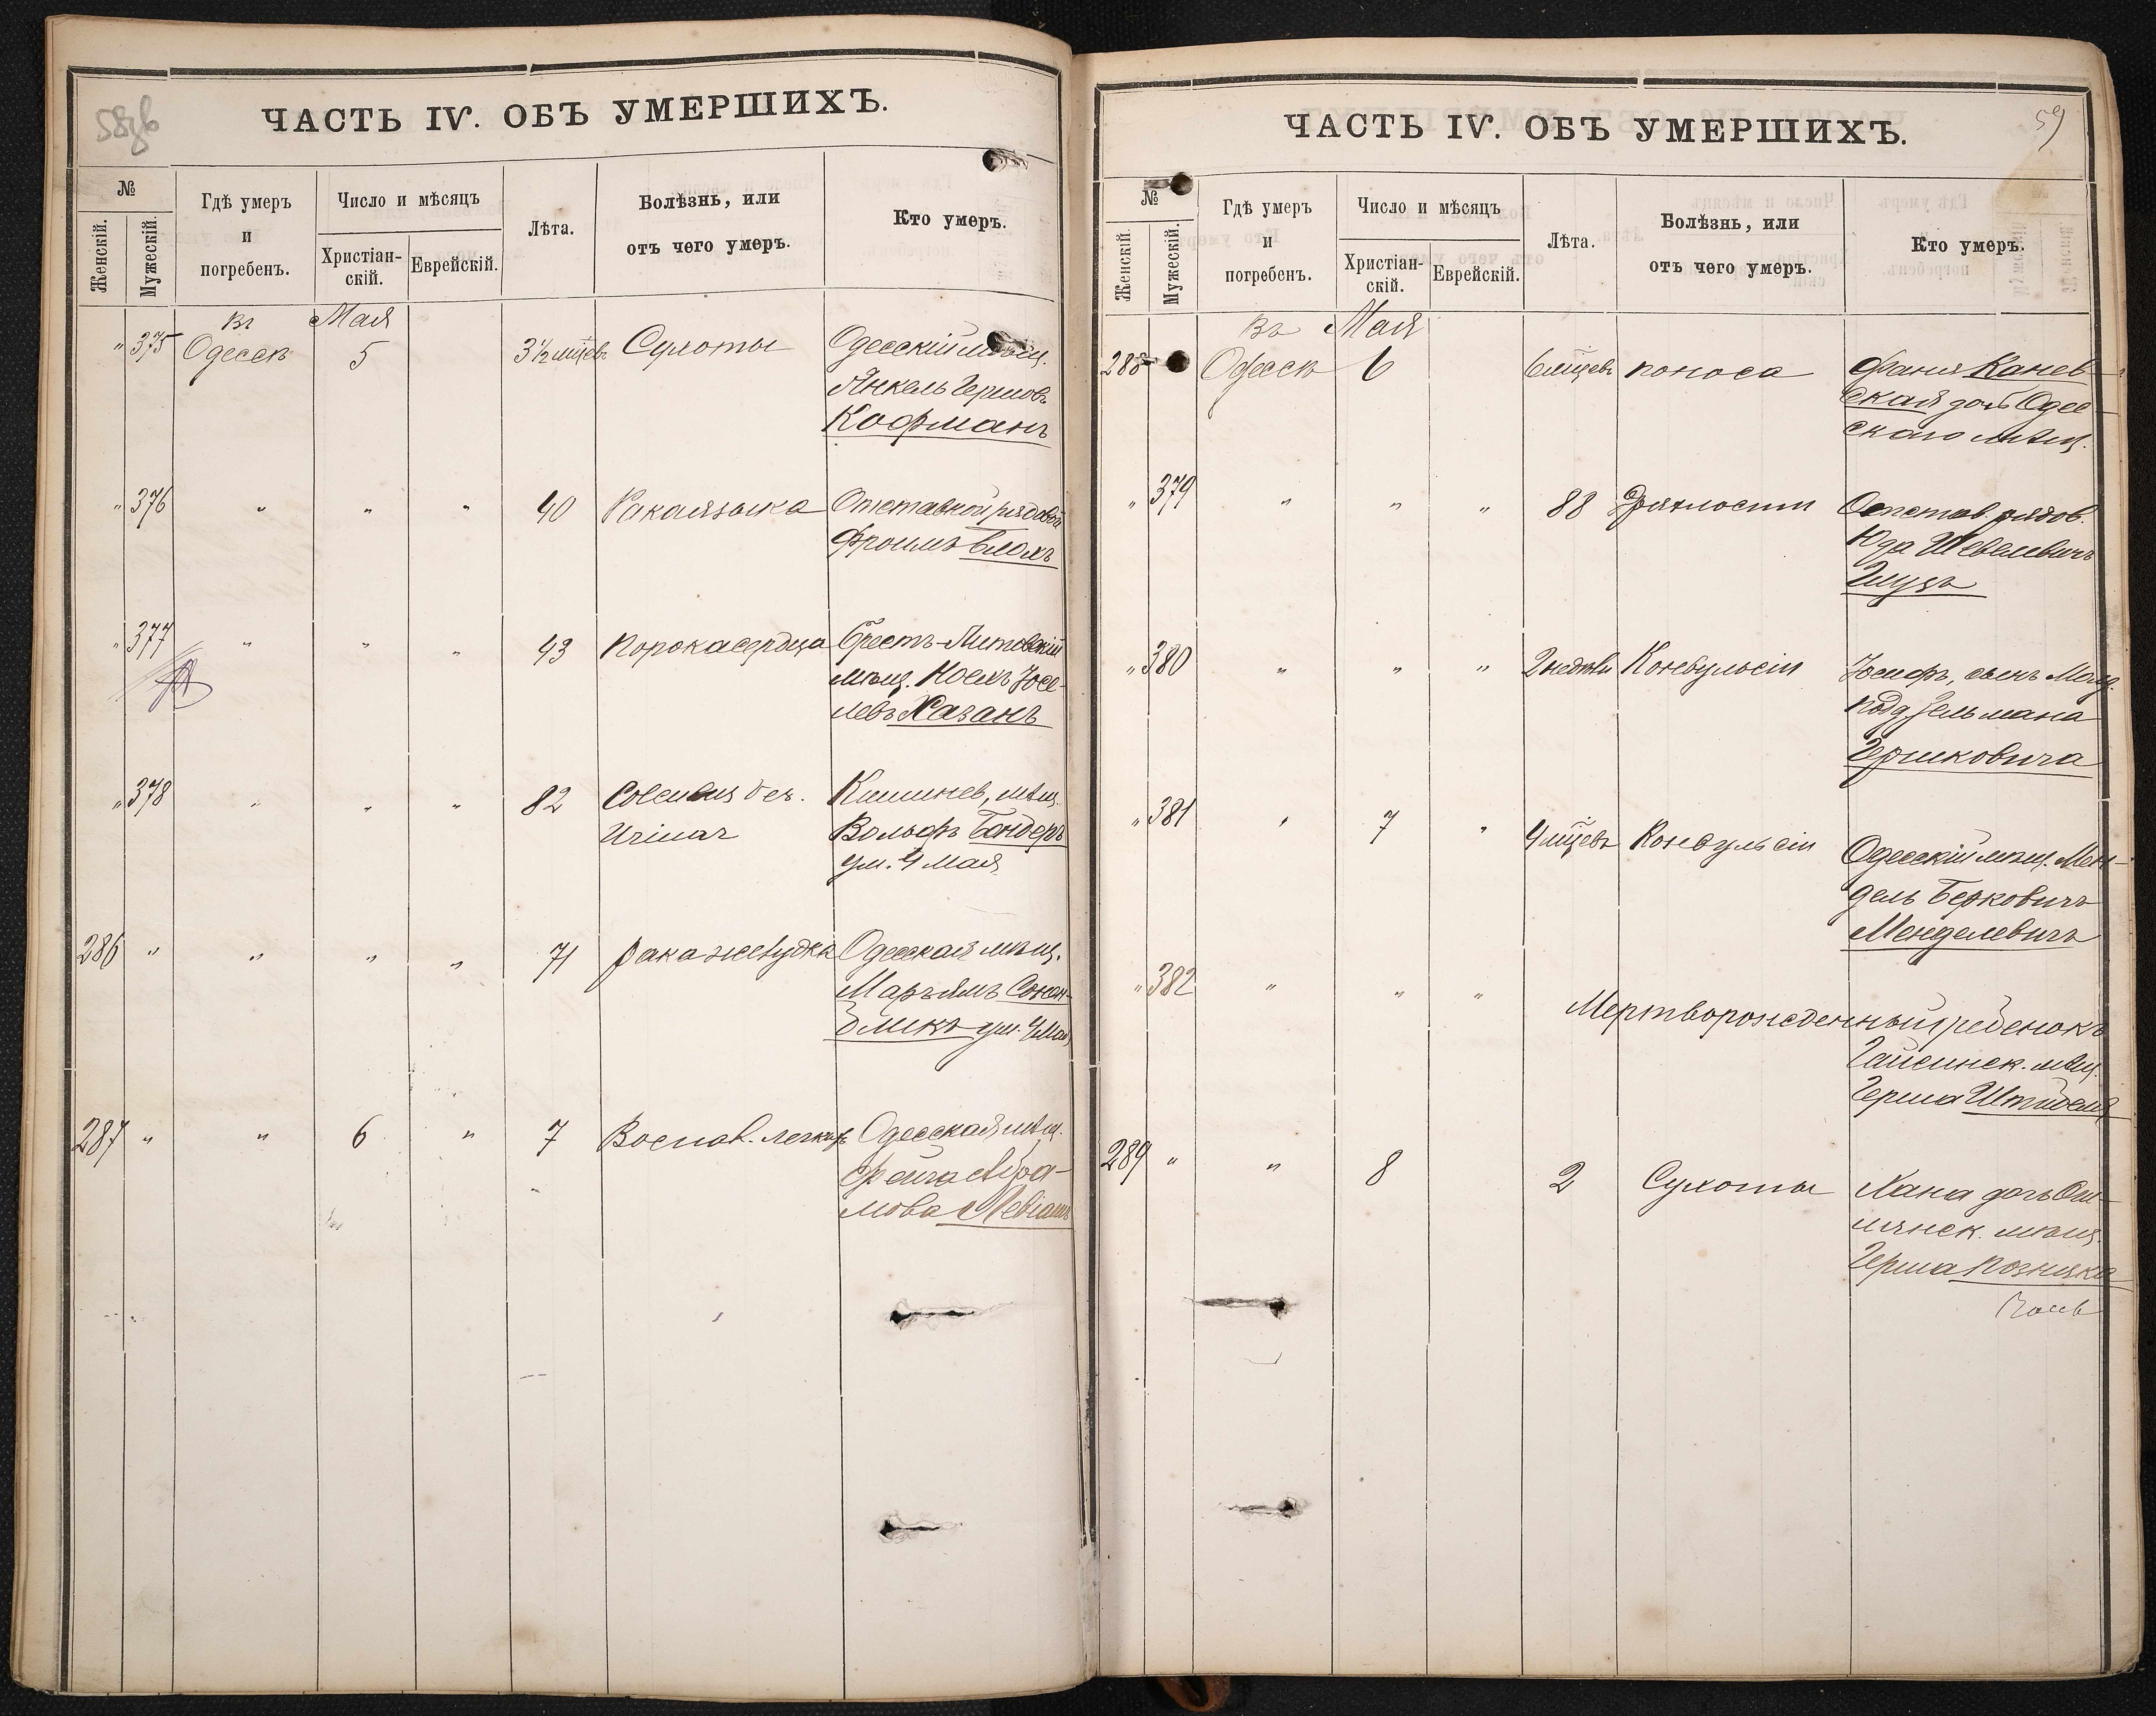 58об
ЧАСТЬ IV. ОБЪ УМЕРШИХЪ.
№
Женскій.
Мужескій.
Гдѣ умеръ
и
погребенъ.
Число и мѣсяцъ
Христіан-
скій.
Еврейскій.
Лѣта.
Болѣзнь, или
отъ чего умеръ.
Кто умеръ.
Въ Мая
" 375 Одессѣ 5 3½ мѣсцевъ Сухоты Одесскій мѣщ.
Янкель Гершовъ
Кофманъ
" 376 " " " 40 Рака языка Отставной рядовой
Фроимъ Блохъ
" 377 " " " 43 Порока сердца Брестъ-Литовскій
мѣщ. Носхъ Іосе-
левъ Хазанъ
" 378 " " " 82 Kишинев. мѣщ.
Urinar Вольфъ Бендеръ
ум. 4 Мая
286 " " " " 71 Рака желудка Одесская мѣщ.
Марьямъ
ум. 4 Мая
287 " " 6 " 7 Воспал. легкихъ Одесская мѣщ.
Фейга Абра-
мова
59
ЧАСТЬ IV. ОБЪ УМЕРШИХЪ.
№
Женскій.
Мужескій.
Гдѣ умеръ
и
погребенъ.
Число и мѣсяцъ
Христіан-
скій.
Еврейскій.
Лѣта.
Болѣзнь, или
отъ чего умеръ.
Кто умеръ.
Въ Мая
288 Одессѣ 6 6 мѣсцевъ поноса Фаня Канев-
ская дочь Одес-
скаго мѣщ.
" 379 " " " 88 Дряхлости Отстав. рядов.
Юда Шевелевичъ
" 380 " " " 2 недѣли Конвульсіи Іосифъ, сынъ
Зельмана
Гершковича
" 381 " 7 " 4 мѣсцевъ Конвульсіи Одесскій мѣщ. Мен-
дель Берковичъ
Менделевичъ
" 382 " " " Мертворожденный ребенокъ
Гайсинск. мѣщ.
Герша
289 " " 8 2 Сухоты Хана дочь Ош-
мянск. мѣщ.
Герша Позняка